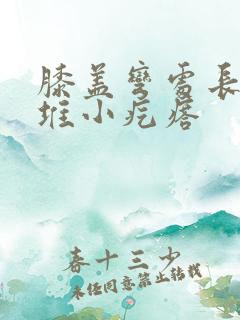 膝盖弯雷长
堆小疙瘩
春十三少
未经同意禁止转载